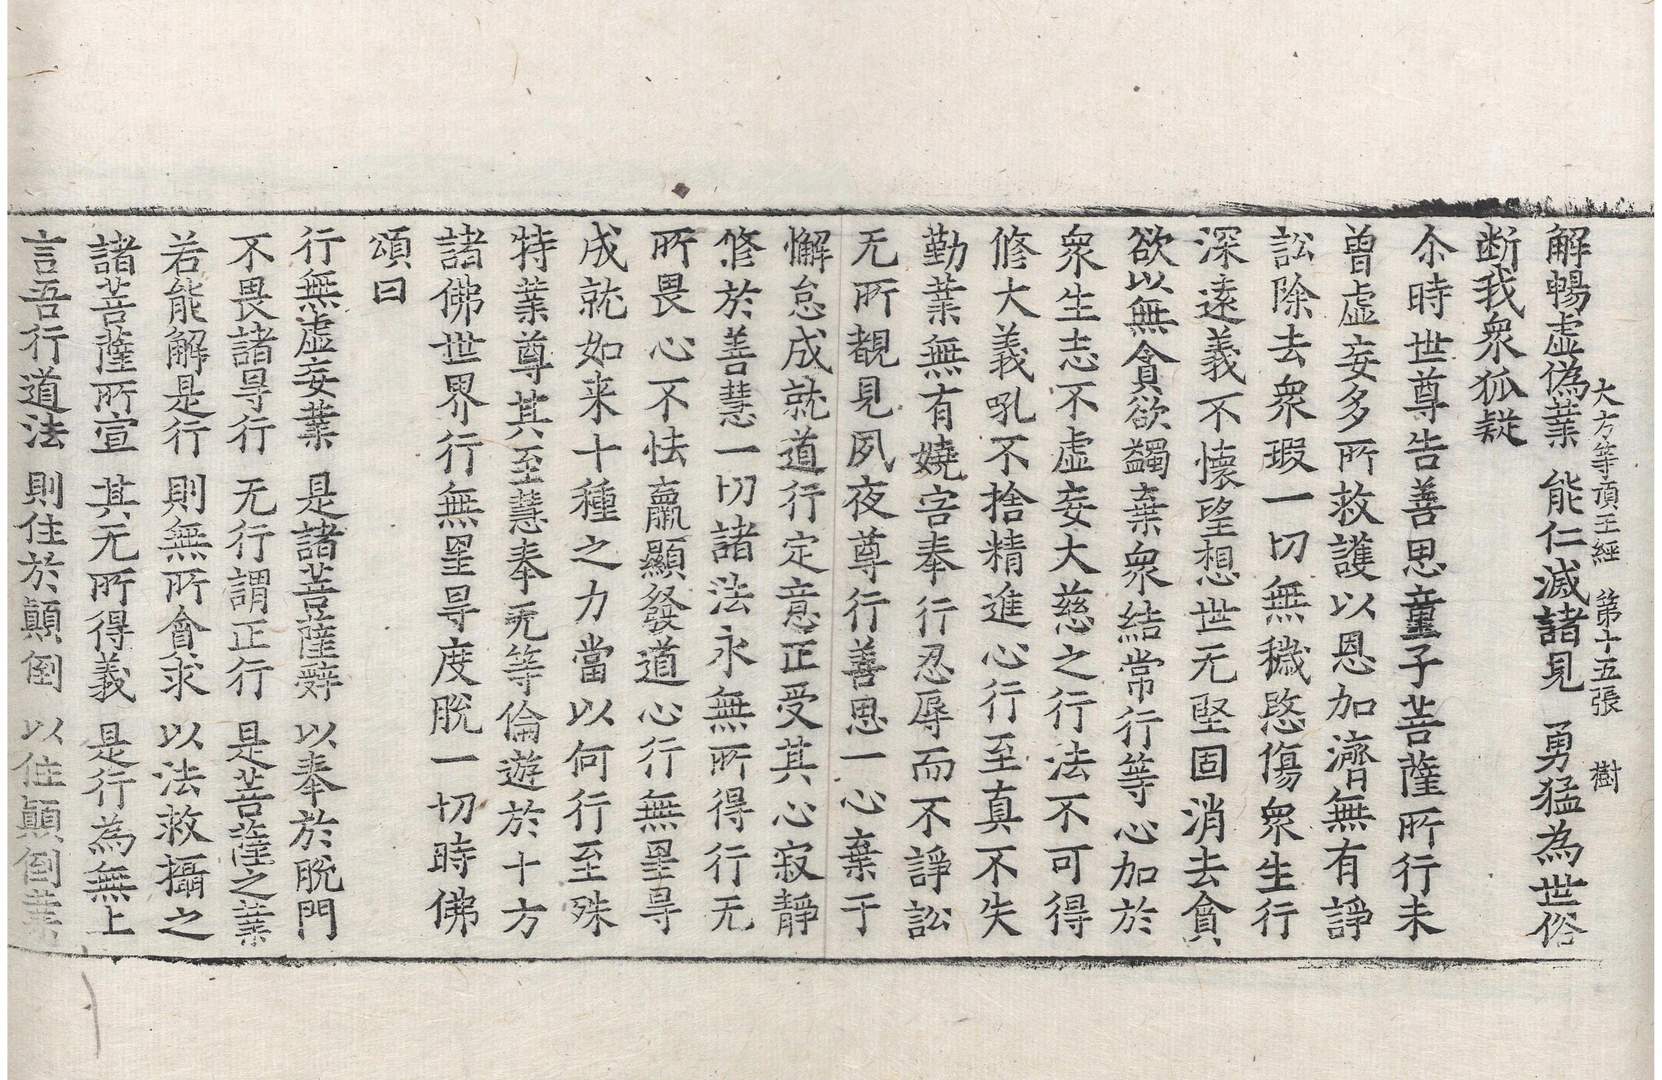 大方等頂王經　第十五張　樹
解暢虛偽業　能仁滅諸見　勇猛為世俗
断我衆狐疑
尒時世尊告善思童子菩薩所行未
曽虛妄多所救護以恩加濟無有諍
訟除去衆瑕一切無穢愍傷衆生行
深遠義不懷望想世无堅固消去貪
欲以無貪欲蠲棄衆結常行等心加於
衆生志不虛妄大慈之行法不可得
修大義吼不捨精進心行至真不失
勤業無有嬈害奉行忍辱而不諍訟
无所覩見夙夜尊行善思一心棄于
懈怠成就道行定意正受其心寂靜
修於善慧一切諸法永無所得行无
所畏心不怯羸顯發道心行無罣㝵
成就如来十種之力當以何行至殊
特業尊其至慧奉无等倫遊於十方
諸佛世界行無罣㝵度脫一切時佛
頌曰
行無虛妄業　是諸菩薩辤　以奉於脫門
不畏諸㝵行　无行謂正行　是菩薩之業
若能解是行　則無所貪求　以法救攝之
諸菩薩所宣　其无所得義　是行為無上
言吾行道法　則住於顛倒　以住顛倒業